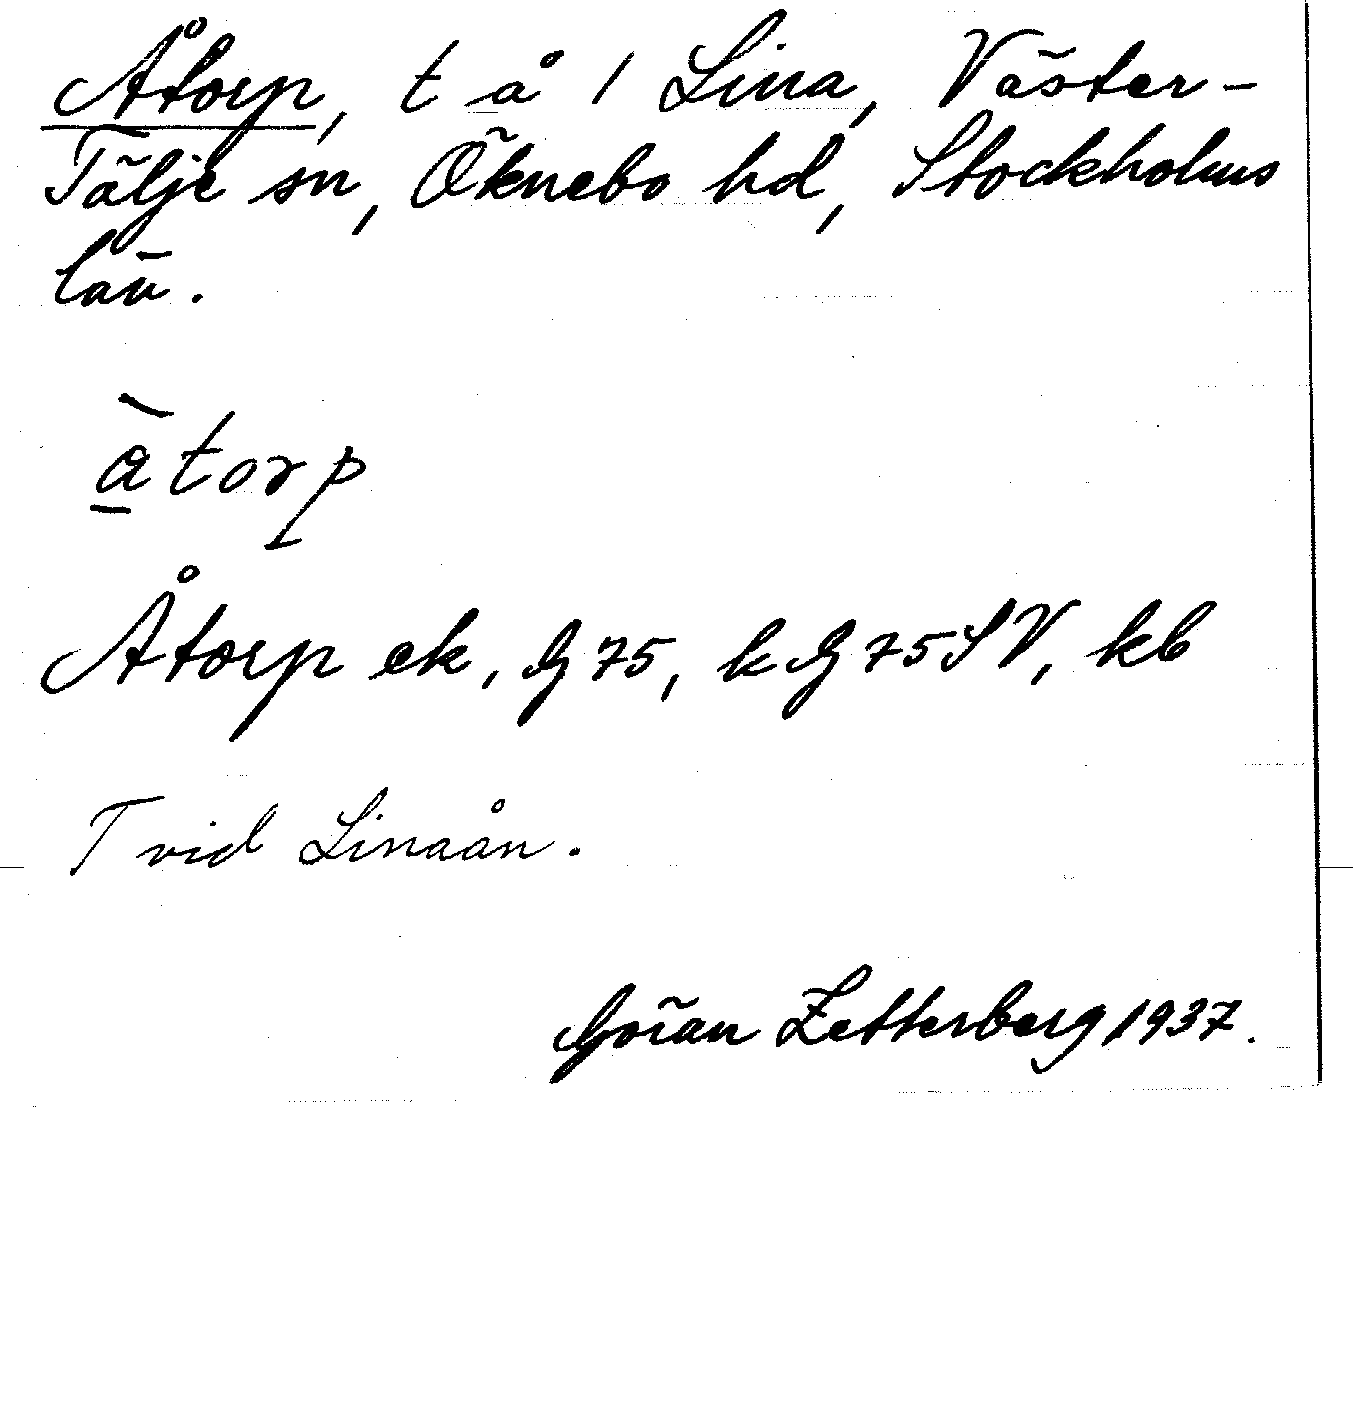 Åtorp, t å 1 Lina, Väster-
Tälje sn, Öknebo hd, Stockholms
län.
àtorp
Åtorp ek, G 75, k G 75 SV, kb
T vid Linaån.
Göran Zetterberg 1937.